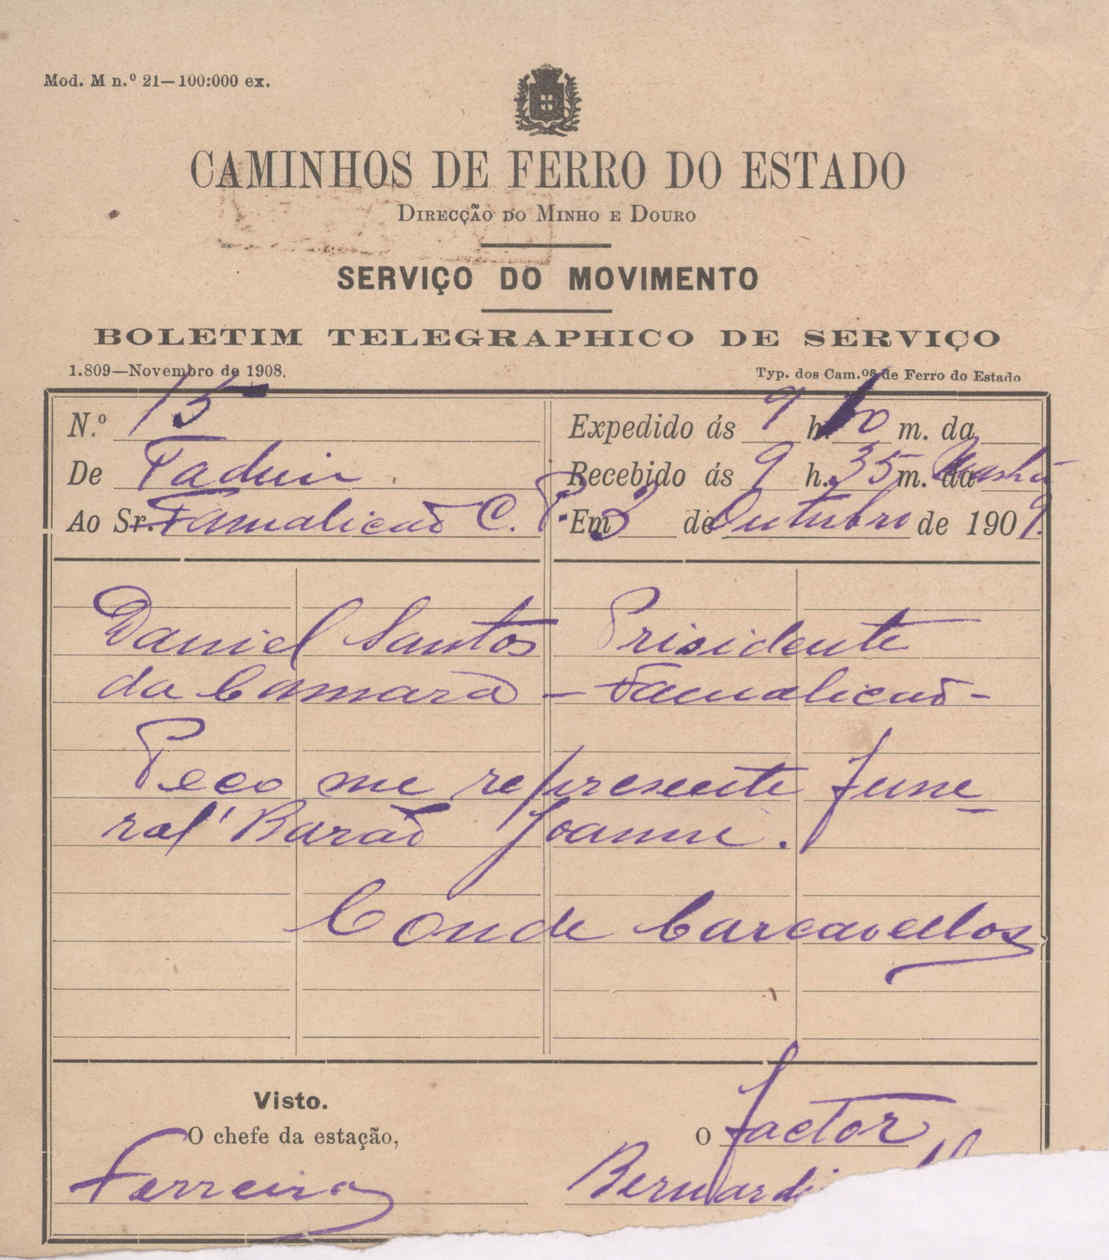 Mod. M n.º 21—100:000 ex.
CAMINHOS DE FERRO DO ESTADO
DIRECÇÃO DO MINHO E DOURO
SERVIÇO DO MOVIMENTO
BOLETIM TELEGRAPHICO DE SERVIÇO
1.809—Novembro de 1908.
Typ. dos Cam.ºs de Ferro do Estado
N.º 15
Expedido ás 9 h. m. da
De Tadim
Recebido ás 9 h. 35 m. da Manhã
Ao Sr. Famalicão C. P.
Em 3 de Outubro de 1909.
Daniel Santos Prisidente
da Camara – Famalicão –
Peço me represente fune
ral Barão Joanne.
Conde Carcavellos
Visto.
O chefe da estação,
O factor
Ferreira